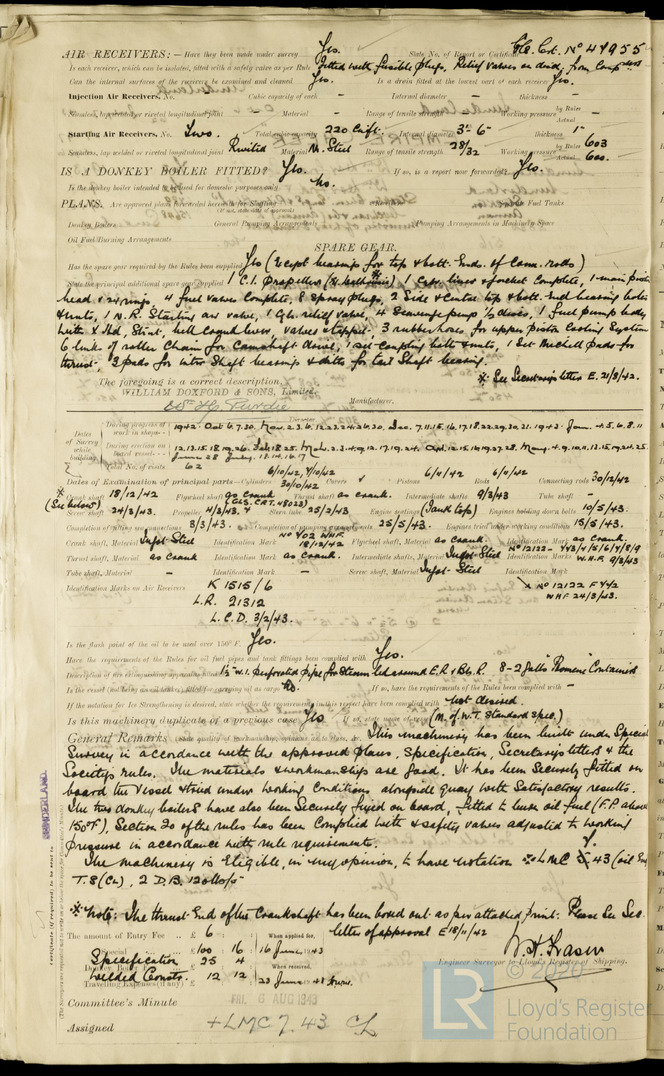 AIR RECEIVERS:— Have they been made under survey Yes. State No. of Report or Certificate Gls. Cert. No 44955
Is each receiver, which can be isolated, fitted with a safety valve as per Rule Fitted with fusible plugs, Relief valves on disch. from Compressors
Can the internal surfaces of the receivers be examined and cleaned Yes. Is a drain fitted at the lowest part of each receiver Yes.
Injection Air Receivers, No. - Cubic capacity of each - Internal diameter - thickness -
Seamless, lap welded or riveted longitudinal joint - Material - Range of tensile strength - Working pressure by Rules - Actual -
Starting Air Receivers, No. Two. Total cubic capacity 220 Cu. ft. Internal diameter 3'-6" thickness 1"
Seamless, lap welded or riveted longitudinal joint Rivetted Material M. Steel Range of tensile strength 28/32 Working pressure by Rules 603 Actual 600.
IS A DONKEY BOILER FITTED? Yes. If so, is a report now forwarded? Yes.
Is the donkey boiler intended to be used for domestic purposes only No.
PLANS. Are approved plans forwarded herewith for Shafting Receivers Fuel Tanks
(If not, state date of approval)
Donkey Boilers General Pumping Arrangements Pumping Arrangements in Machinery Space
Oil Fuel Burning Arrangements
SPARE GEAR.
Has the spare gear required by the Rules been supplied Yes (Except bearings for top & bott. Ends. of Conn. rods)
State the principal additional spare gear supplied 1 C.I. Propeller 1 Cyl. liner & jacket Complete, 1 main piston
head & rings, 4 fuel valves Complete, 8 spray plugs, 2 Side & Centre top & bott. End bearing bolts
& nuts, 1 N.R. Starting air valve, 1 Cyl. relief valve, 4 Scavenge pump discs, 1 fuel pump body
with & bell crank lever, valves & tappet. 3 rubber hoses for upper piston Cooling System
6 links of roller Chain for Camshaft drive, 1 set coupling bolts & nuts, 1 Set Michell pads for
thrust, 3 pads for inter Shaft bearings & ditto for tail Shaft bearing.
* See Secretarys letter E. 21/8/42.
The foregoing is a correct description,
WILLIAM DOXFORD & SONS, Limited.
Manufacturer.
Dates of Survey while building
During progress of work in shops - - 1942. Oct. 6.7.30. Nov. 2.3.6.12.23.24.26.30. Dec. 7.11.15.16.17.18.22.29.30.31. 1943. Jan. 4.5.6.8.11
During erection on board vessel - - 12.13.15.18.19.26. Feb. 18.25. Mch. 2.3.4.9.12.17.19.24. Apr. 12.15.16.19.27.28. May. 4.9.10.11.13.15.19.24.25.
Total No. of visits 62
Dates of Examination of principal parts—Cylinders 6/10/42, 7/10/42 30/10/42 Covers - Pistons 6/11/42 Rods 6/11/42 Connecting rods 30/12/42
* Crank shaft 18/12/42 Flywheel shaft as crank Thrust shaft as crank. Intermediate shafts 9/3/43 Tube shaft -
(See below)
Screw shaft 24/3/43. Propeller 4/3/43. Stern tube 25/2/43. Engine seatings (Tank top) Engines holding down bolts 10/5/43.
Completion of fitting sea connections 3/3/43. Completion of pumping arrangements 25/5/43. Engines tried under working conditions 15/5/43.
Crank shaft, Material Ingot Steel Identification Mark No 402 WHF 18/12/42 Flywheel shaft, Material as crank Identification Mark as crank.
Thrust shaft, Material as crank Identification Mark as crank. Intermediate shafts, Material Ingot Steel Identification Marks W.H.F. 9/3/43
Tube shaft, Material - Identification Mark - Screw shaft, Material Ingot-Steel Identification Mark No 12122 F442
WHF 24/3/43.
Identification Marks on Air Receivers K 1515/6
L.R. 21312
L.C.D. 3/2/43.
Is the flash point of the oil to be used over 150° F. Yes.
Have the requirements of the Rules for oil fuel pipes and tank fittings been complied with Yes.
Description of fire extinguishing apparatus fitted 1½" W.I. perforated pipe for Steam led around E.R & Blr. R. 8-2 Galls Phomene Containers
Is the vessel (not being an oil tanker) fitted for carrying oil as cargo No. If so, have the requirements of the Rules been complied with -
If the notation for Ice Strengthening is desired, state whether the requirements in this respect have been complied with Not desired.
Is this machinery duplicate of a previous case Yes If so, state name of vessel (M. of W.T. Standard Spec.)
General Remarks (State quality of workmanship, opinions as to class, &c. This machinery has been built under Special
Survey in accordance with the approved plans, Specification, Secretarys letters & the
Societys rules. The materials & workmanship are good. It has been Securely fitted on
board the Vessel & tried under working Conditions alongside quay with Satisfactory results.
The two donkey boilers have also been Securely fixed on board, fitted to burn oil fuel (F.P. above
150°F), Section 20 of the rules has been Complied with & safety valves adjusted to working
pressure in accordance with rule requirements.
The machinery is Eligible, in my opinion, to have notation + LMC 7. 43 (oil Eng)
T.S (CL), 2 D.B. 120 lbs/□"
* Note: The thrust End of the Crankshaft has been bored out as per attached print. Please See Sec.
letter of approval E 18/11/42
The amount of Entry Fee .. £ 6 : : When applied for,
Special £100 : 16 : 16 June 1943
Specification 25 4
Donkey Boiler
Welded Constn. £ 12 : 12 When received,
Travelling Expenses (if any) £ 23 June 43
W.H. Fraser
Engineer Surveyor to Lloyd's Register of Shipping.
Committee's Minute FRI. 6 AUG 1943
Assigned + LMC 7. 43 CL
SUNDERLAND
Certificate (if required) to be sent to
© 2020
LR
Lloyd's Register
Foundation